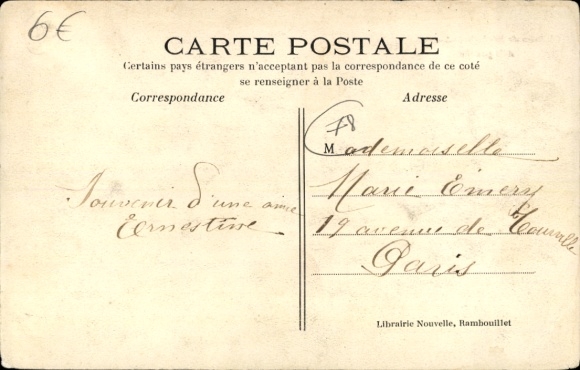 6€
CARTE POSTALE
Certains pays étrangers n'acceptant pas la correspondance de ce coté
se renseigner à la Poste
Correspondance
Adresse
78
Mademoiselle
Marie Emery
19 avenue de Tourville
Paris
Souvenir d'une amie
Ernestine
Librairie Nouvelle, Rambouillet